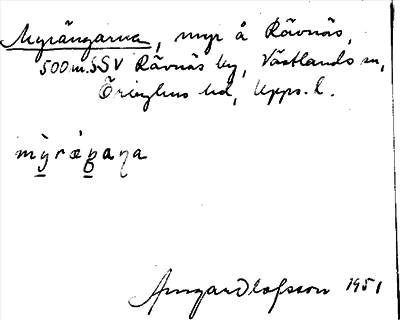 Myrängarna, myr å Rävnäs,
500 m. SSV Rävnäs by, Västlands sn,
Örbyhus hd, Upps. l.
Olofsson 1951